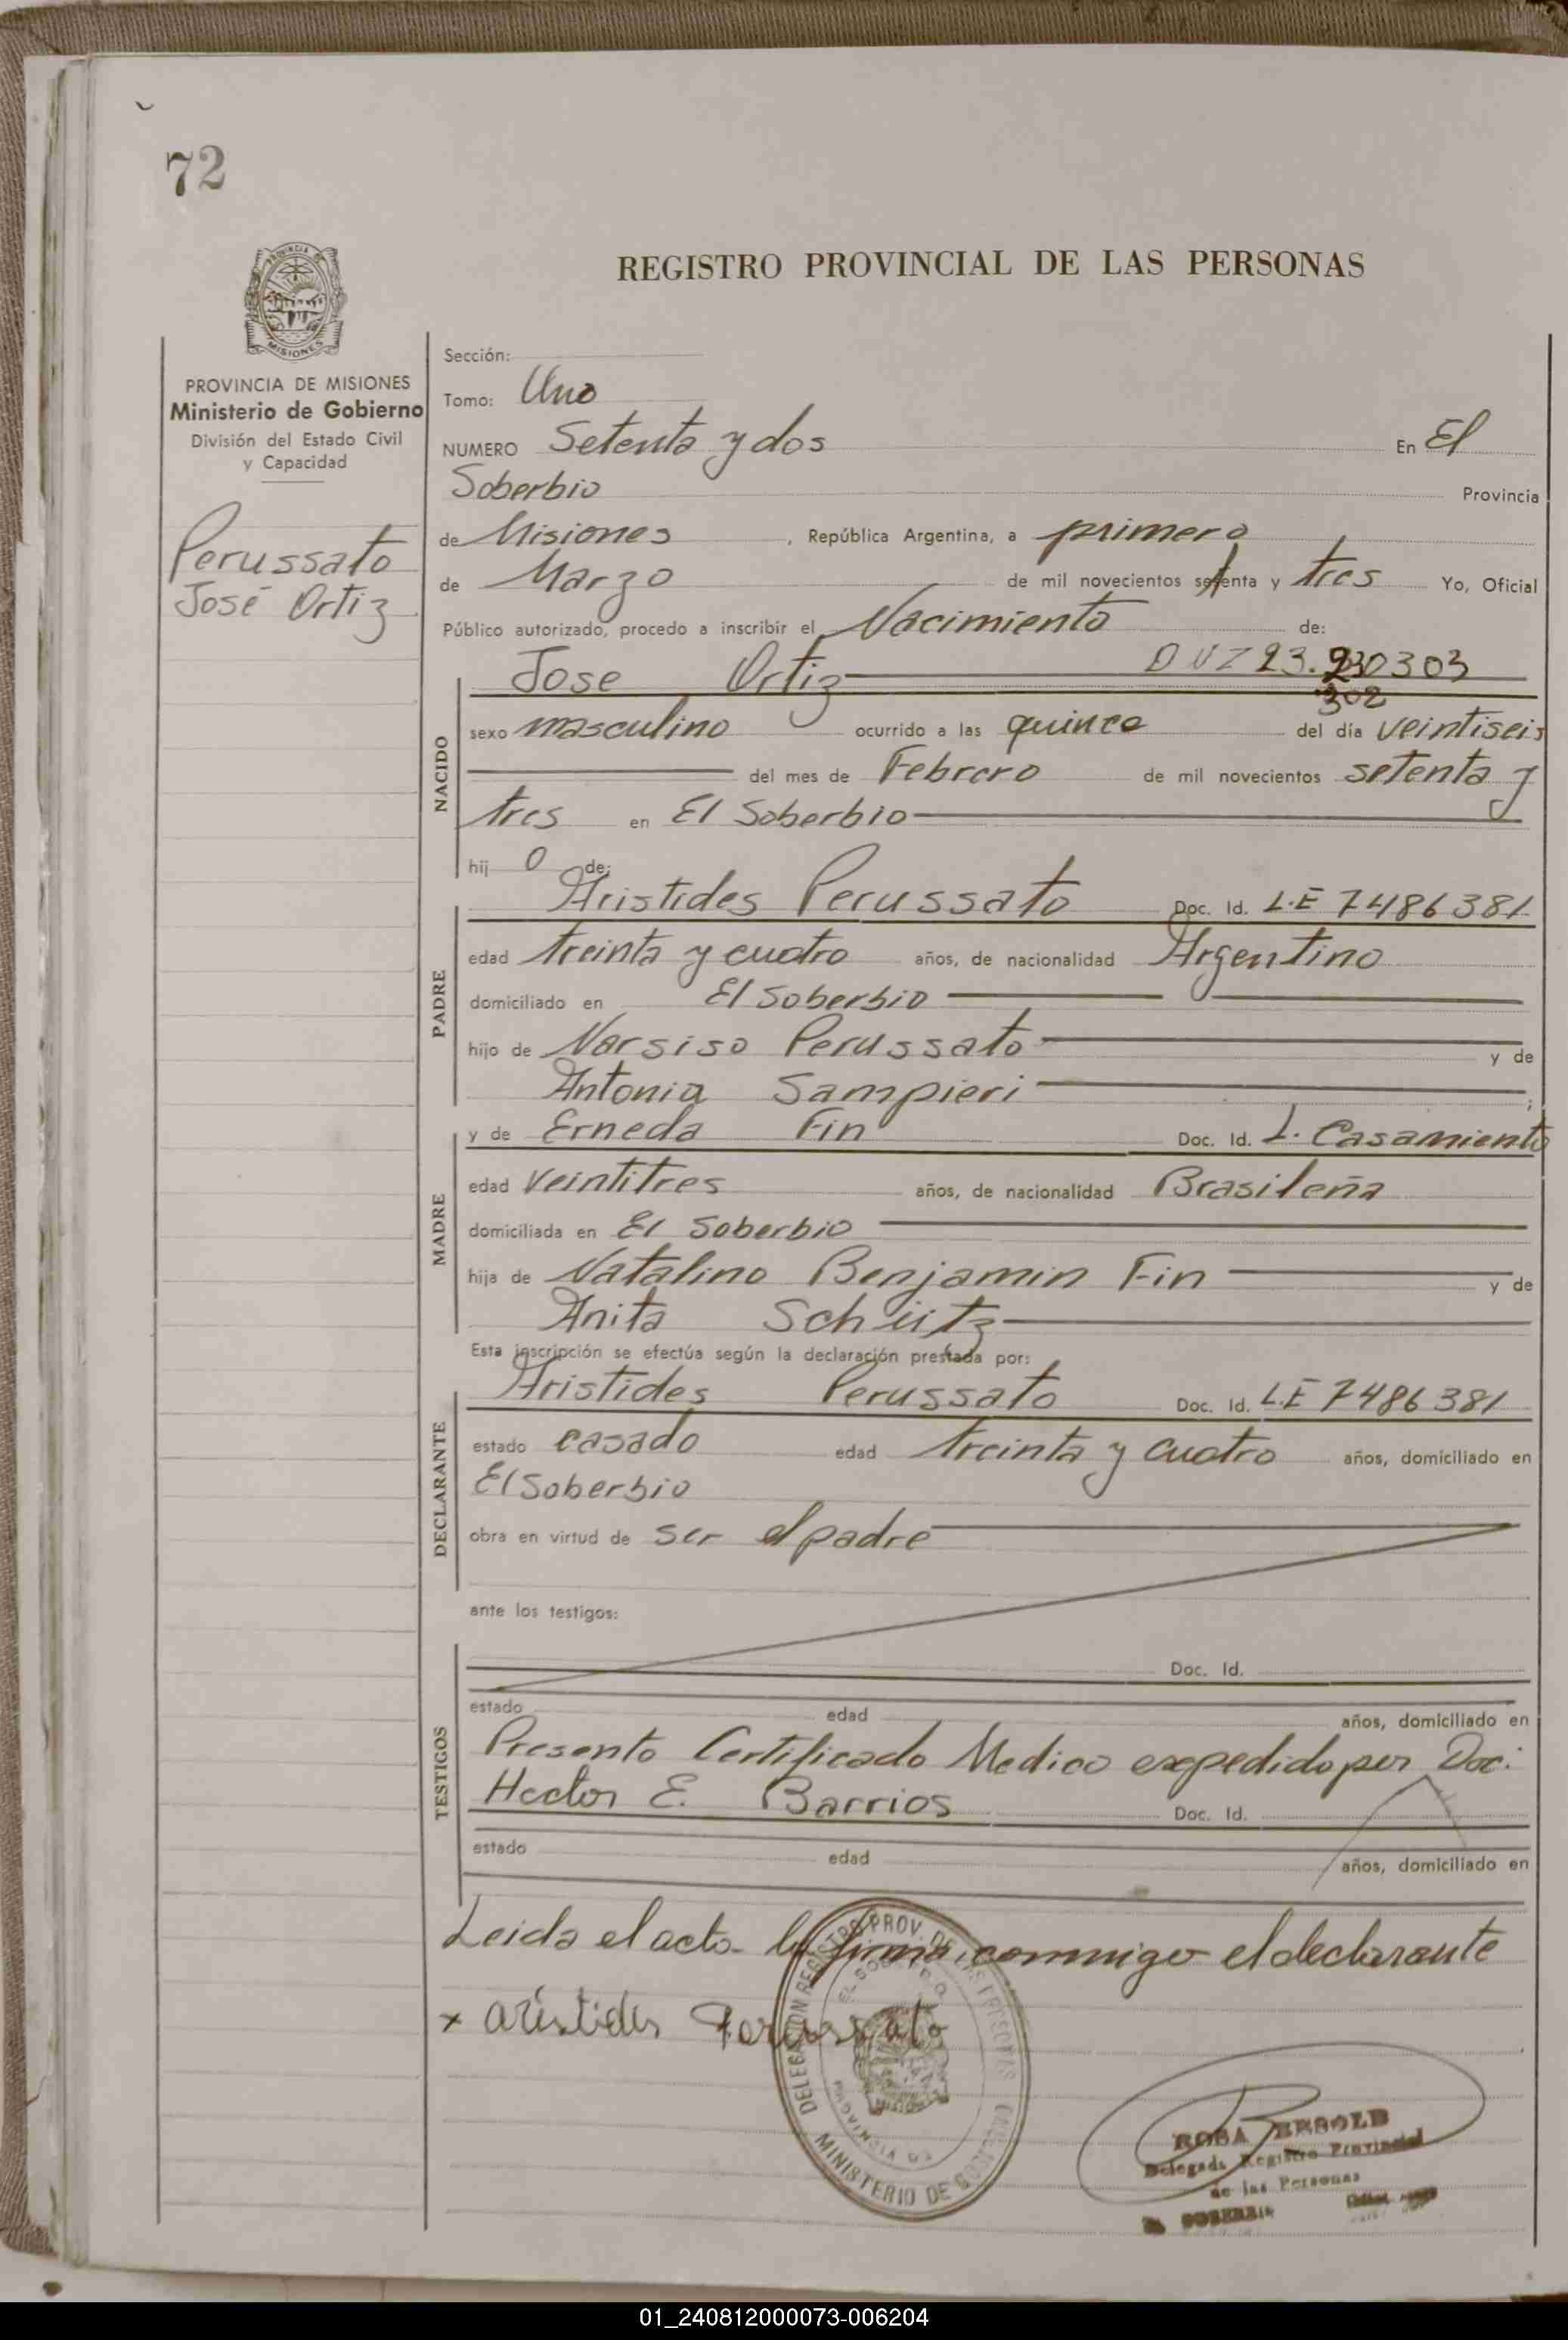 72
REGISTRO PROVINCIAL DE LAS PERSONAS
PROVINCIA
MISIONES
PROVINCIA DE MISIONES
Ministerio de Gobierno
División del Estado Civil
y Capacidad
Perussato
José Ortiz
Sección:
Tomo: Uno
NUMERO Setenta y dos En El
Soberbio Provincia
de Misiones, República Argentina, a primero
de Marzo de mil novecientos setenta y tres Yo, Oficial
Público autorizado, procedo a inscribir el Nacimiento de:
Jose Ortiz
302
NACIDO
sexo masculino ocurrido a las quince del día veintiseis
del mes de Febrero de mil novecientos setenta y
tres en El Soberbio
hij o de:
PADRE
Aristides Perussato Doc. Id. L.E 7486381
edad treinta y cuatro años, de nacionalidad Argentino
domiciliado en El Soberbio
hijo de Narsiso Perussato y de
Antonia Sampieri ;
MADRE
y de Erneda Fin Doc. Id. L. Casamiento
edad veintitres años, de nacionalidad Brasileña
domiciliada en El Soberbio
hija de Natalino Benjamin Fin y de
Anita Schütz
Esta inscripción se efectúa según la declaración prestada por:
DECLARANTE
Aristides Perussato Doc. Id. L.E 7486381
estado casado edad treinta y cuatro años, domiciliado en
El Soberbio
obra en virtud de ser el padre
ante los testigos:
TESTIGOS
Doc. Id.
estado edad años, domiciliado en
Presento Certificado Medico expedido por Doc.
Hector E. Barrios Doc. Id.
estado edad años, domiciliado en
Leida el acta la firma conmigo el declarante
x aristides Perussato
DELEGACION REGISTRO PROV. DE LAS PERSONAS
EL SOBERBIO
PROVINCIA DE
MISIONES
MINISTERIO DE GOBIERNO
ROSA BESOLD
Delegada Registro Provincial
de las Personas
SOBERBIO
01_240812000073-006204